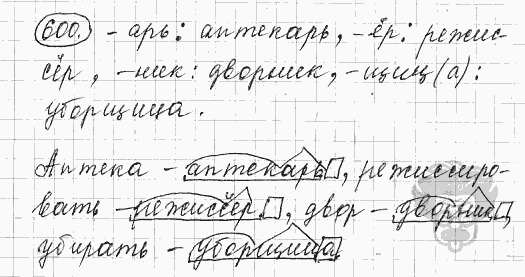 600. -арь: аптекарь, -ёр: режис-
сёр, -ник: дворник, -щиц(а):
уборщица.
Аптека - аптекарь, режиссиро-
вать - режиссёр, двор - дворник,
убирать - уборщица